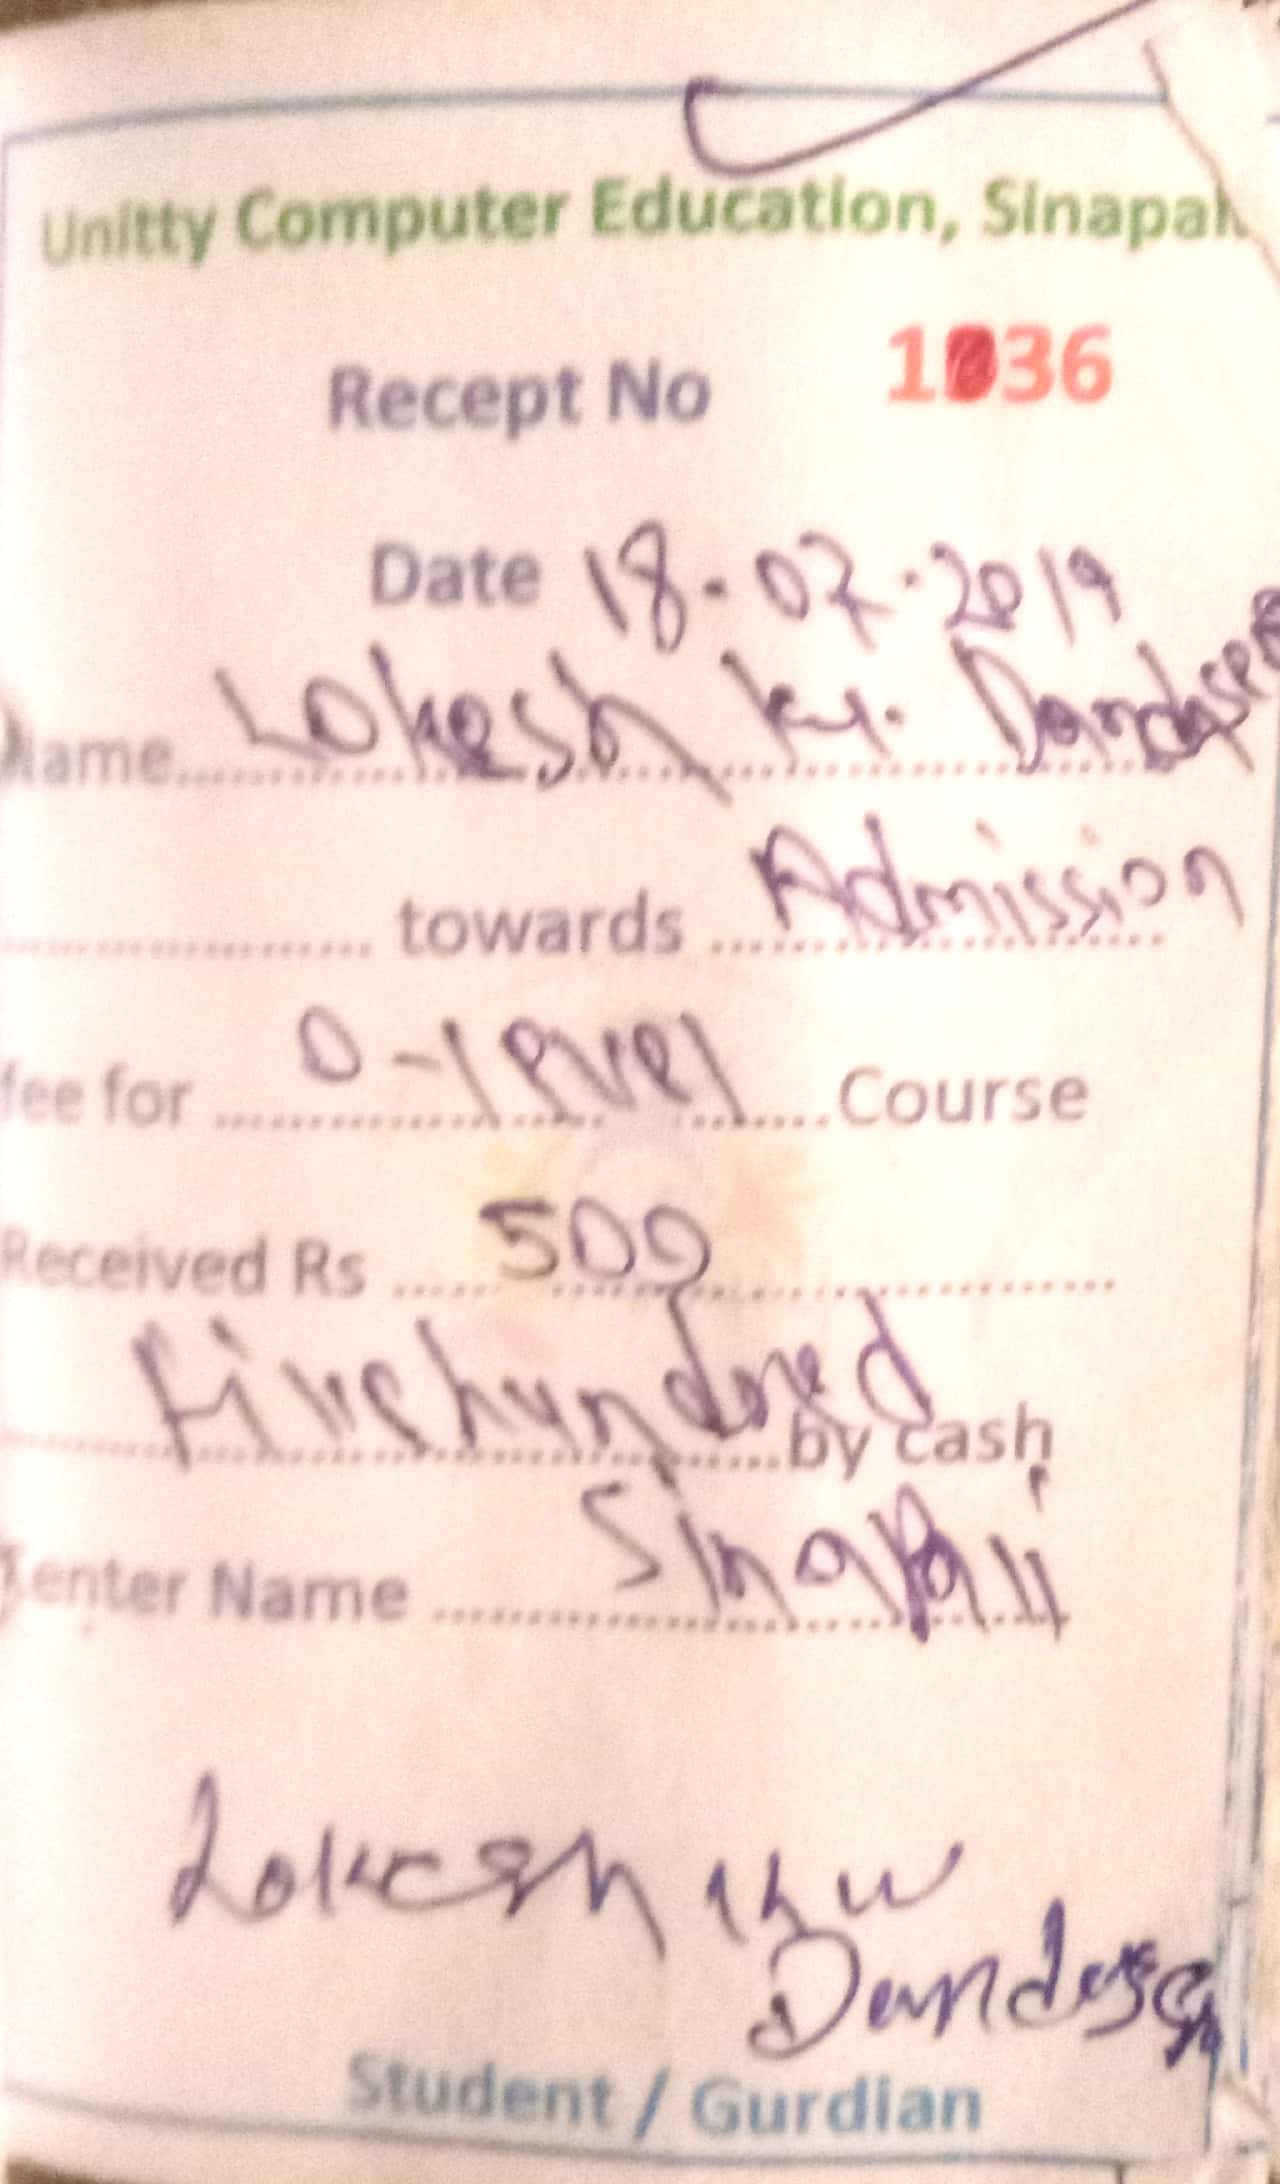 Unitty Computer Education, Sinapali
Recept No 1036
Date 18.07.2019
Name Lokesh Ku. Dandasena
towards Admission
fee for O-level Course
Received Rs 500
Fivehundred by cash
Center Name Sinapali
Lokesh Ku
Dandasena
Student / Gurdian